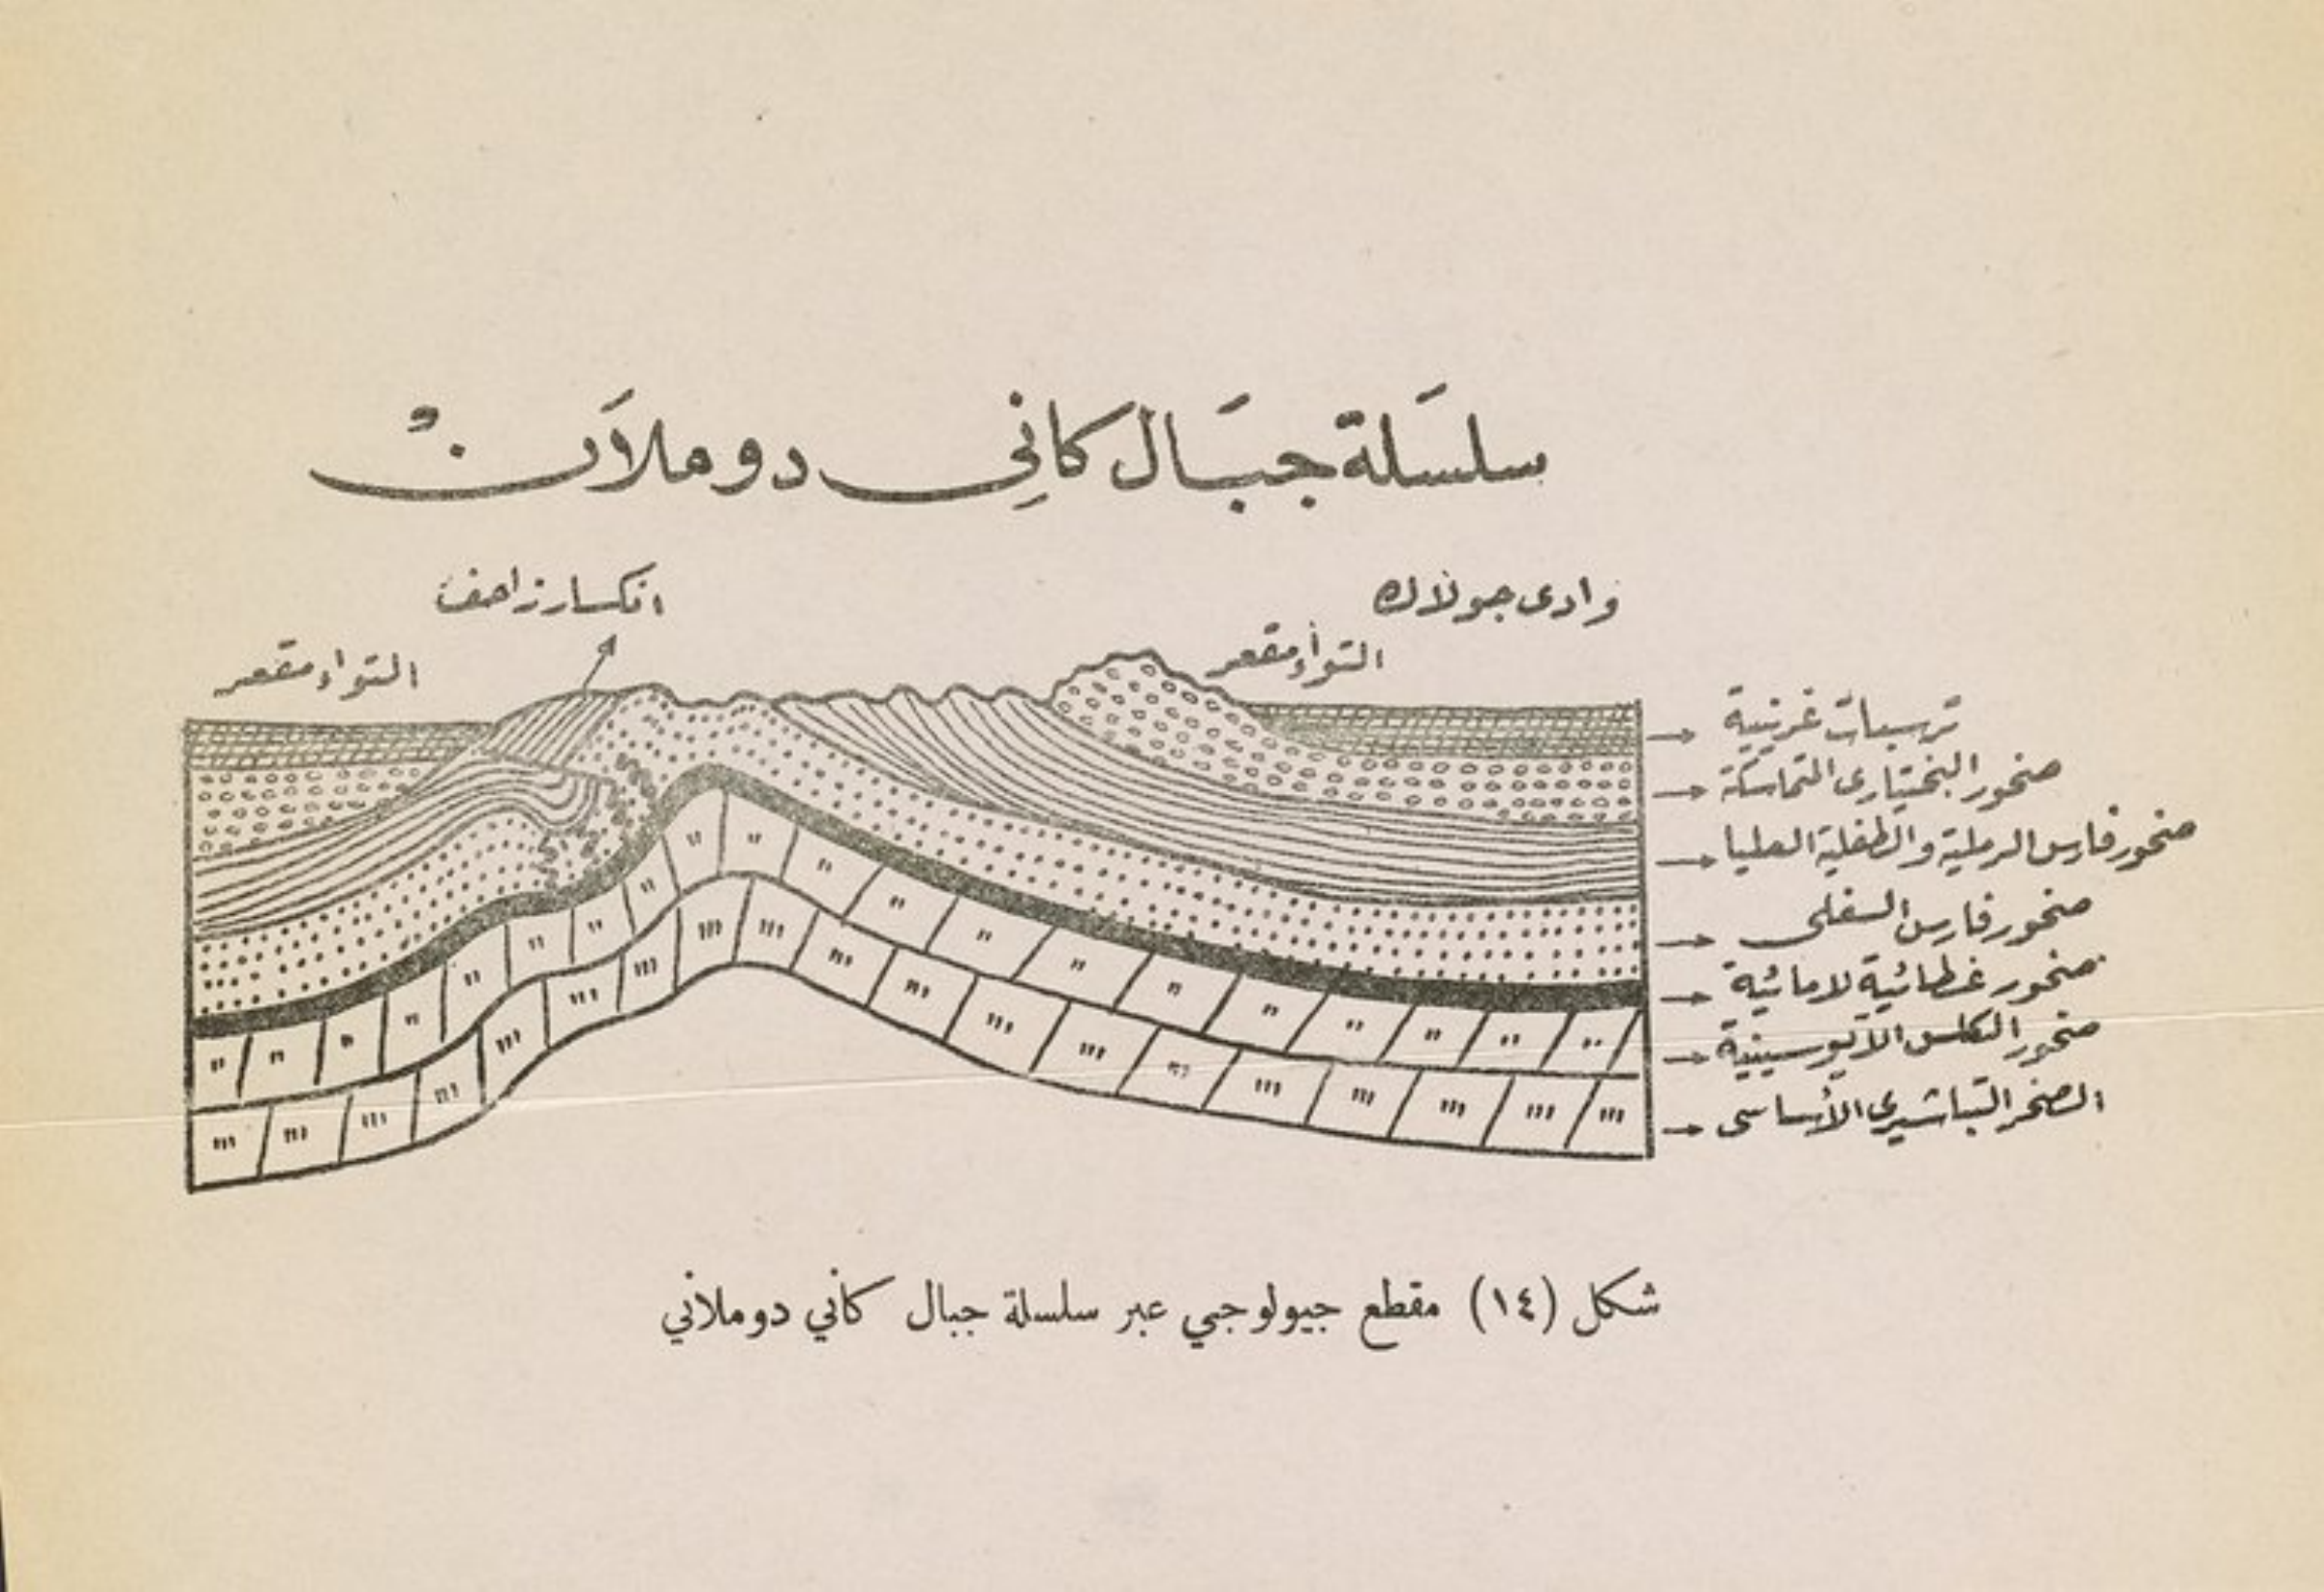 سلسَلة جبَـال كانِي دو ملاَن
وادى جولاك
انكسار زاحف
التواء مقعر
التواء مقعر
ترسبات غرينية
صخور البختيارى المتماسكة
صخور فارس الرملية والطفلية العليا
صخور فارس السفلى
صخور غطائية لامائية
صخور الكلس الأيوسينية
الصخر الطباشيرى الأساسى
شكل (١٤) مقطع جيولوجي عبر سلسلة جبال كاني دوملاني